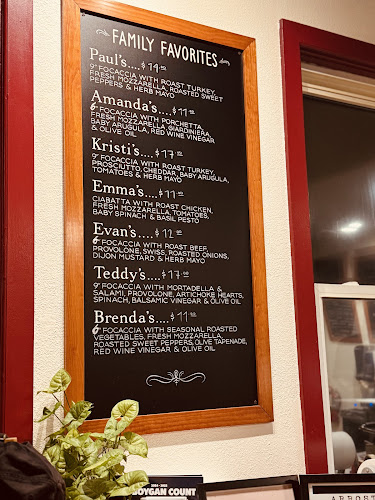 FAMILY FAVORITES
Paul's....$14.00
9" FOCACCIA WITH ROAST TURKEY,
FRESH MOZZARELLA, ROASTED SWEET
PEPPERS & HERB MAYO
Amanda's....$11.00
6" FOCACCIA WITH PORCHETTA,
FRESH MOZZARELLA, GIARDINIERA,
BABY ARUGULA, RED WINE VINEGAR
& OLIVE OIL
Kristi's....$17.00
9" FOCACCIA WITH ROAST TURKEY,
PROSCIUTTO, CHEDDAR, BABY ARUGULA,
TOMATOES & HERB MAYO
Emma's....$11.00
CIABATTA WITH ROAST CHICKEN,
FRESH MOZZARELLA, TOMATOES,
BABY SPINACH & BASIL PESTO
Evan's....$12.00
6" FOCACCIA WITH ROAST BEEF,
PROVOLONE, SWISS, ROASTED ONIONS,
DIJON MUSTARD & HERB MAYO
Teddy's....$17.00
9" FOCACCIA WITH MORTADELLA &
SALAMI, PROVOLONE, ARTICHOKE HEARTS,
SPINACH, BALSAMIC VINEGAR & OLIVE OIL
Brenda's....$11.00
6" FOCACCIA WITH SEASONAL ROASTED
VEGETABLES, FRESH MOZZARELLA,
ROASTED SWEET PEPPERS, OLIVE TAPENADE,
RED WINE VINEGAR & OLIVE OIL
OYGAN COUNT